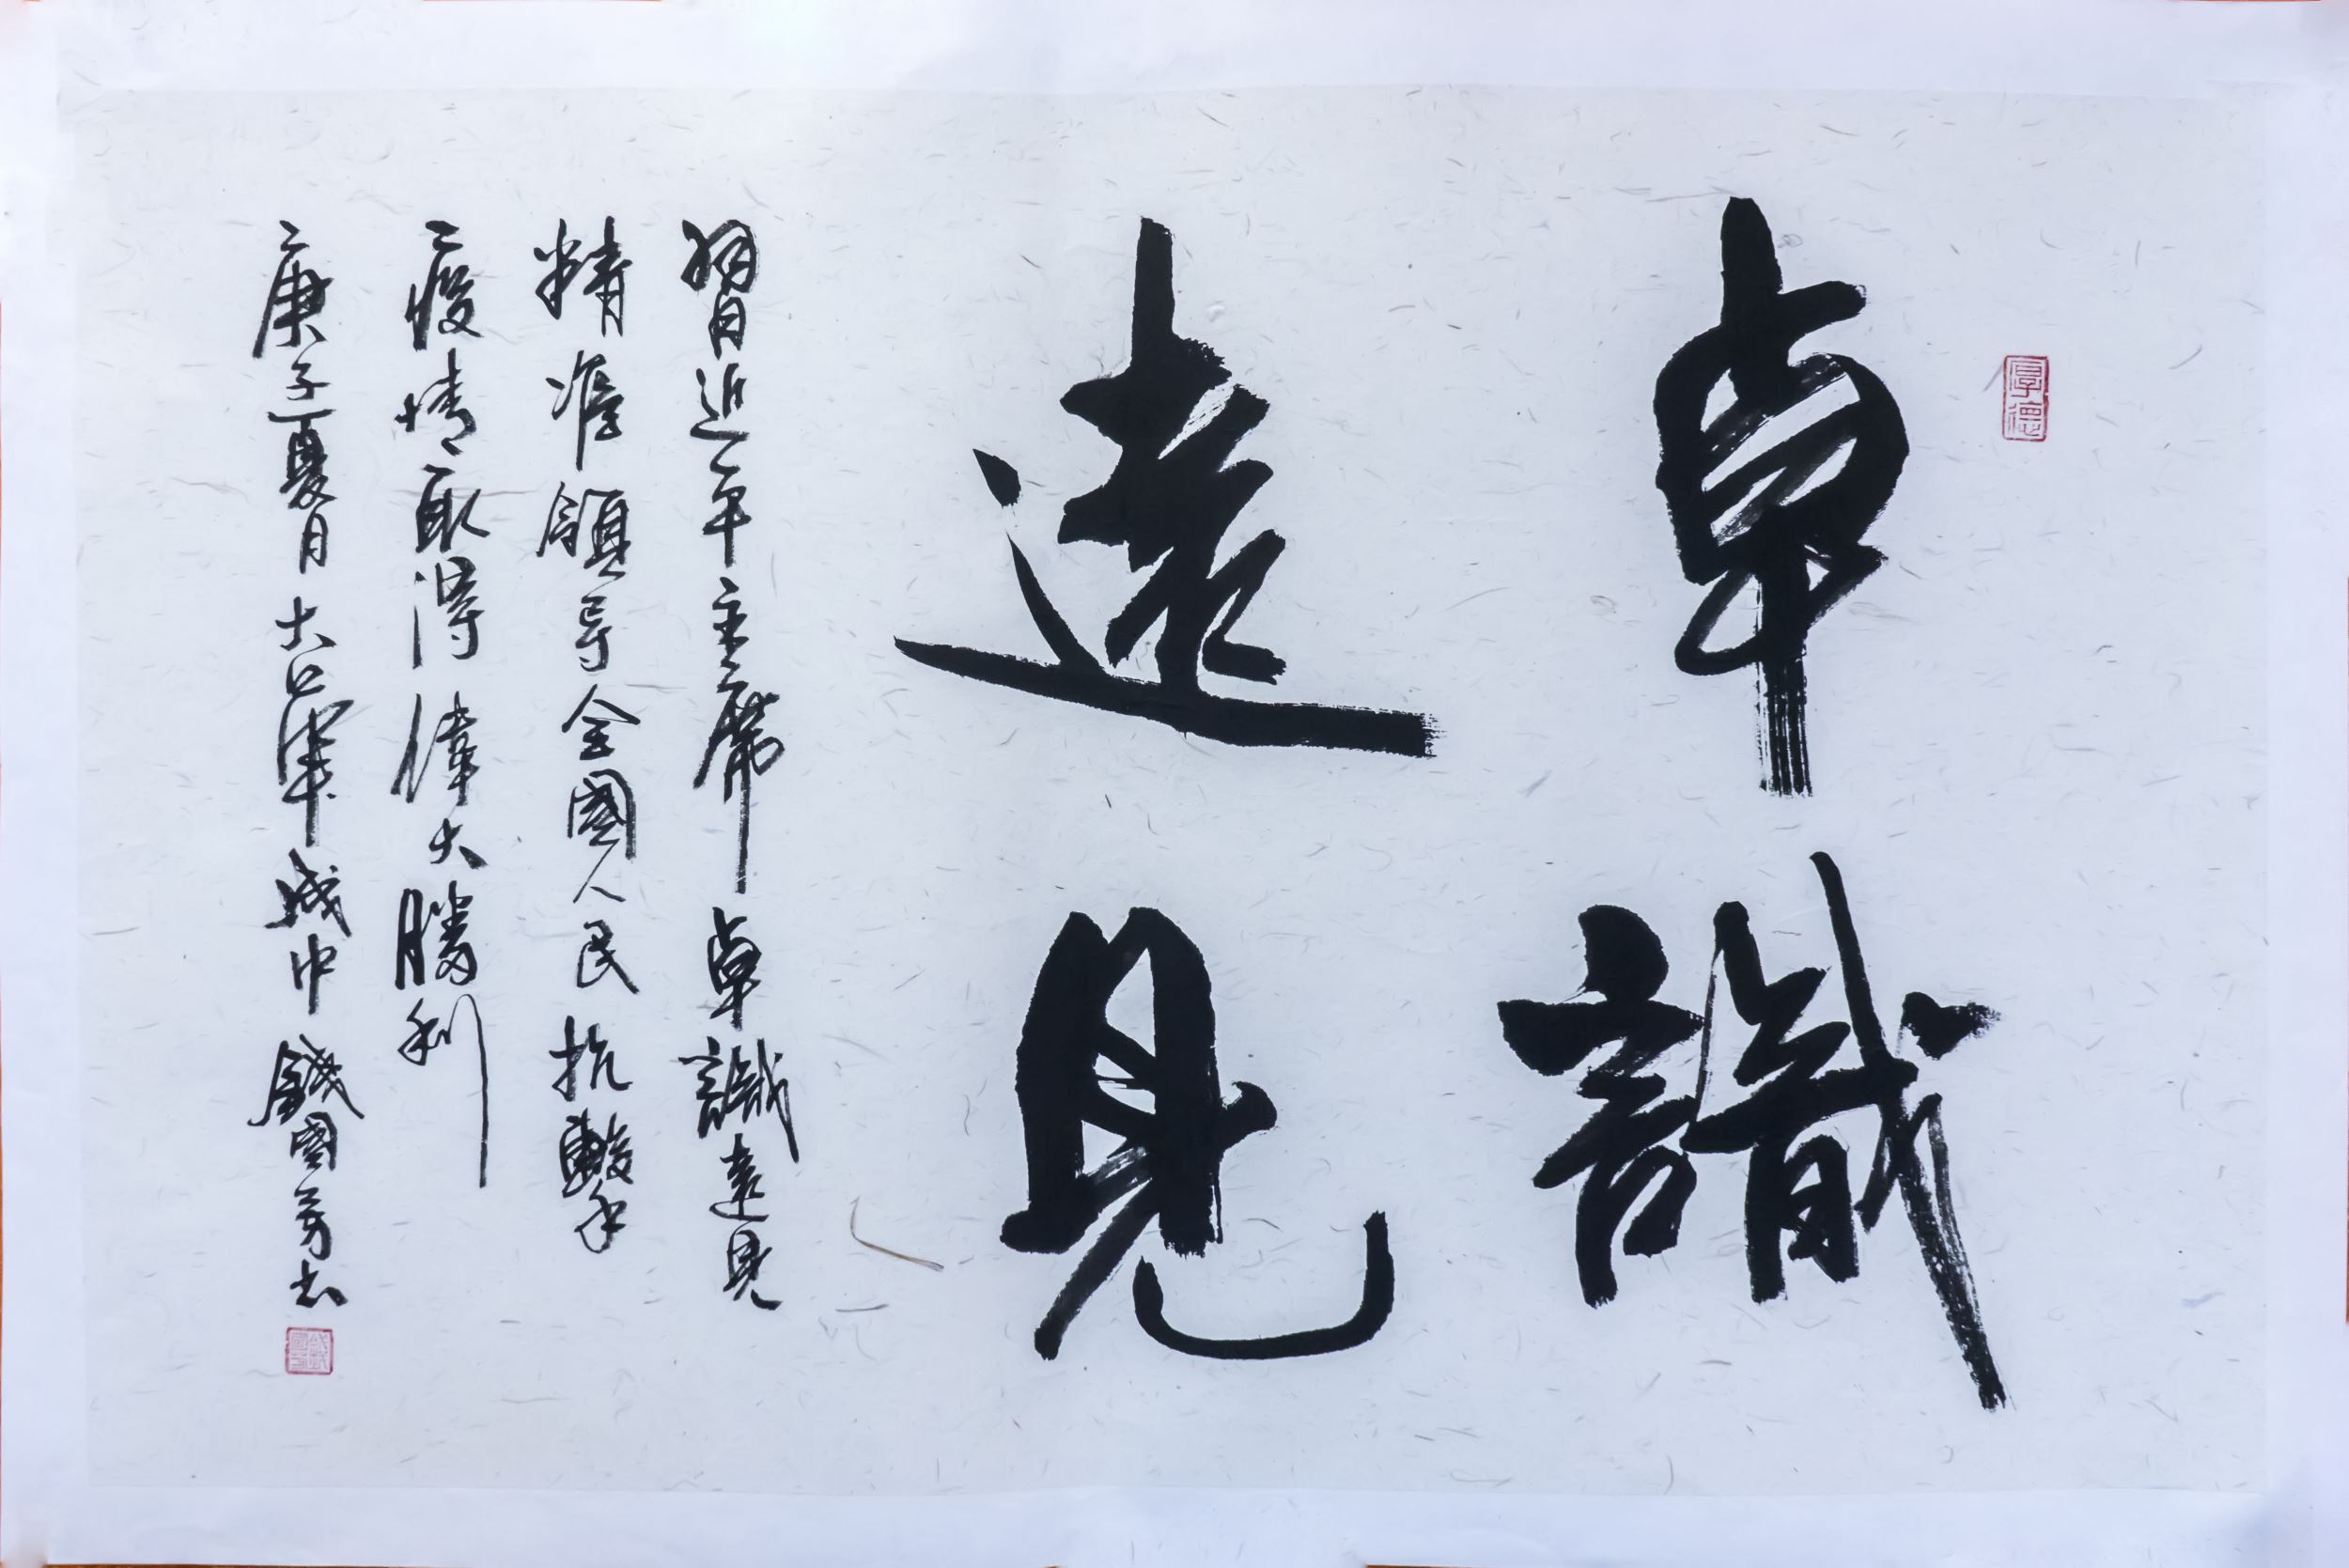 厚德
卓識
遠見
習近平主席卓識遠見
精準領导全國人民抗擊
疫情取得偉大勝利
庚子夏月 城中 錢國芳书